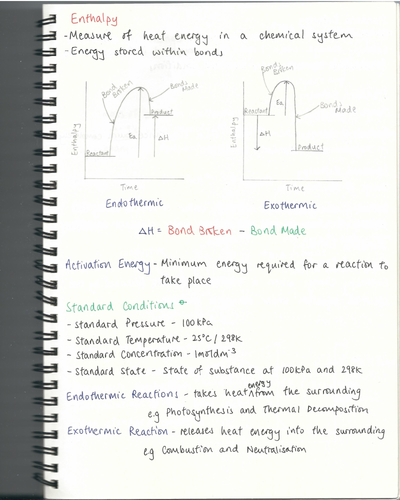 Enthalpy
- Measure of heat energy in a chemical system
- Energy stored within bonds
Bond Broken
Bonds Made
Product
Reactant
Ea
ΔH
Enthalpy
Time
Endothermic
Bond Broken
Bonds Made
Reactant
Ea
ΔH
Product
Enthalpy
Time
Exothermic
ΔH = Bond Broken - Bond Made
Activation Energy - Minimum energy required for a reaction to
take place
Standard Conditions ⦵
- Standard Pressure - 100kPa
- Standard Temperature - 25°C / 298K
- Standard Concentration - 1moldm⁻³
- Standard State - State of substance at 100kPa and 298K
Endothermic Reactions - takes heat energy from the surrounding
e.g Photosynthesis and Thermal Decomposition
Exothermic Reaction - releases heat energy into the surrounding
eg Combustion and Neutralisation